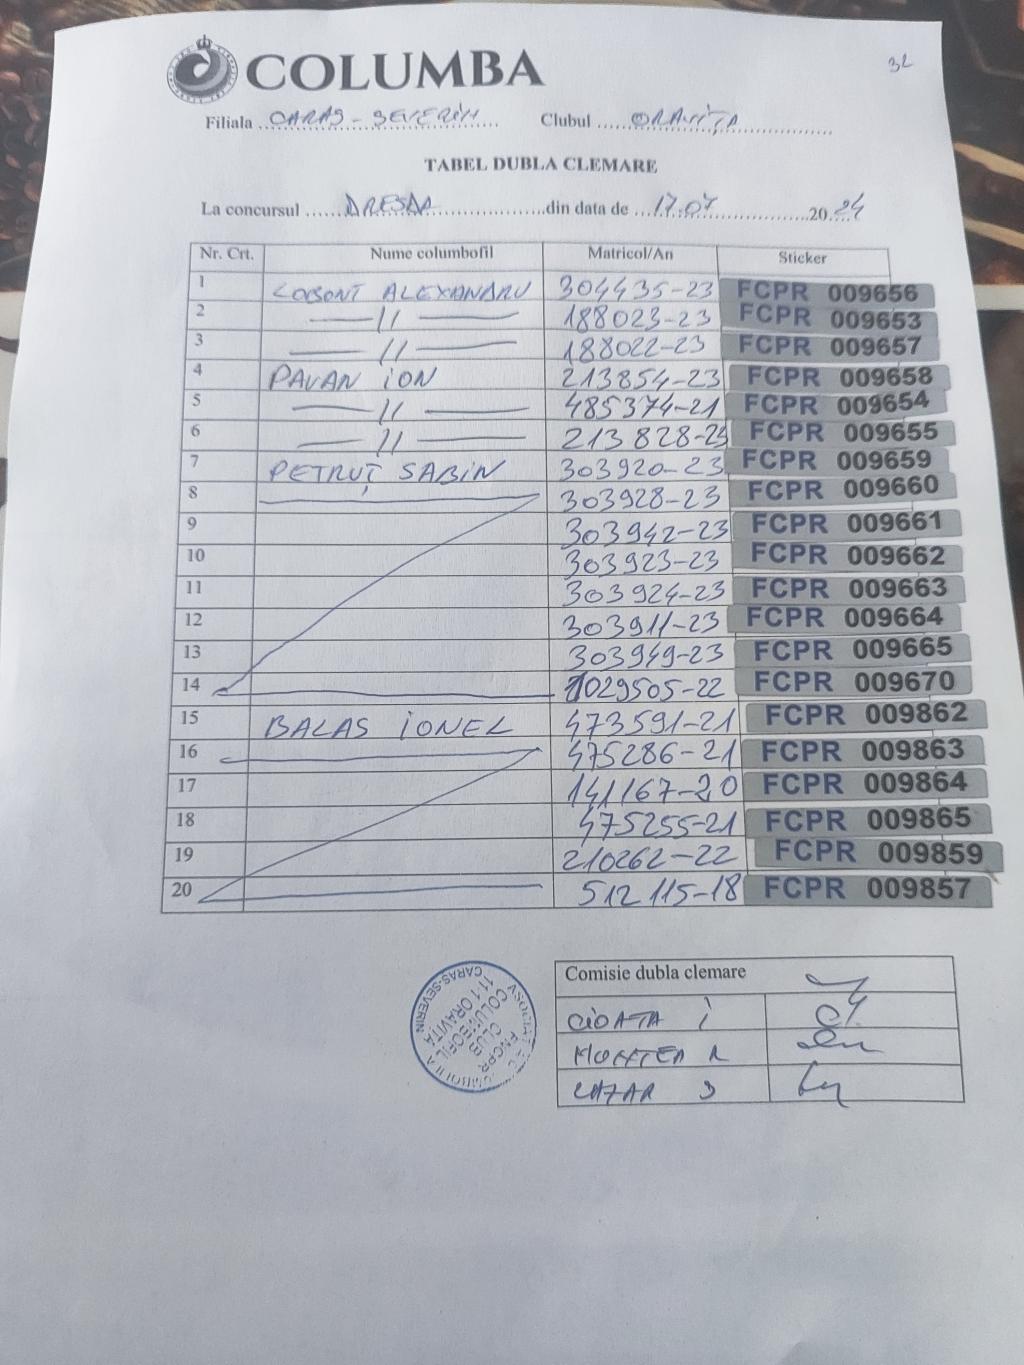 COLUMBA
32
Filiala CARAS-SEVERIN Clubul ORAVIȚA
TABEL DUBLA CLEMARE
La concursul DRESDA din data de 17.07 2024
Nr. Crt. Nume columbofil Matricol/An Sticker
1 LOBONT ALEXANDRU 304435-23 FCPR 009656
2 —//— 188023-23 FCPR 009653
3 —//— 188022-23 FCPR 009657
4 PAVAN ION 213854-23 FCPR 009658
5 —//— 485374-21 FCPR 009654
6 —//— 213828-23 FCPR 009655
7 PETRUȚ SABIN 303920-23 FCPR 009659
8 303928-23 FCPR 009660
9 303942-23 FCPR 009661
10 303923-23 FCPR 009662
11 303924-23 FCPR 009663
12 303911-23 FCPR 009664
13 303949-23 FCPR 009665
14 1029505-22 FCPR 009670
15 BALAS IONEL 473591-21 FCPR 009862
16 475286-21 FCPR 009863
17 141167-20 FCPR 009864
18 475255-21 FCPR 009865
19 210262-22 FCPR 009859
20 512115-18 FCPR 009857
Comisie dubla clemare
CIOATA I
LAZAR D
CARAS-SEVERIN
FNCPR
CLUB
COLUMBOFIL
11-1 ORAVITA